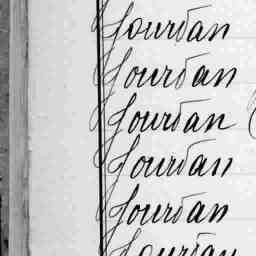 Jourdan
Jourdan
Jourdan
Jourdan
Jourdan
Jourdan